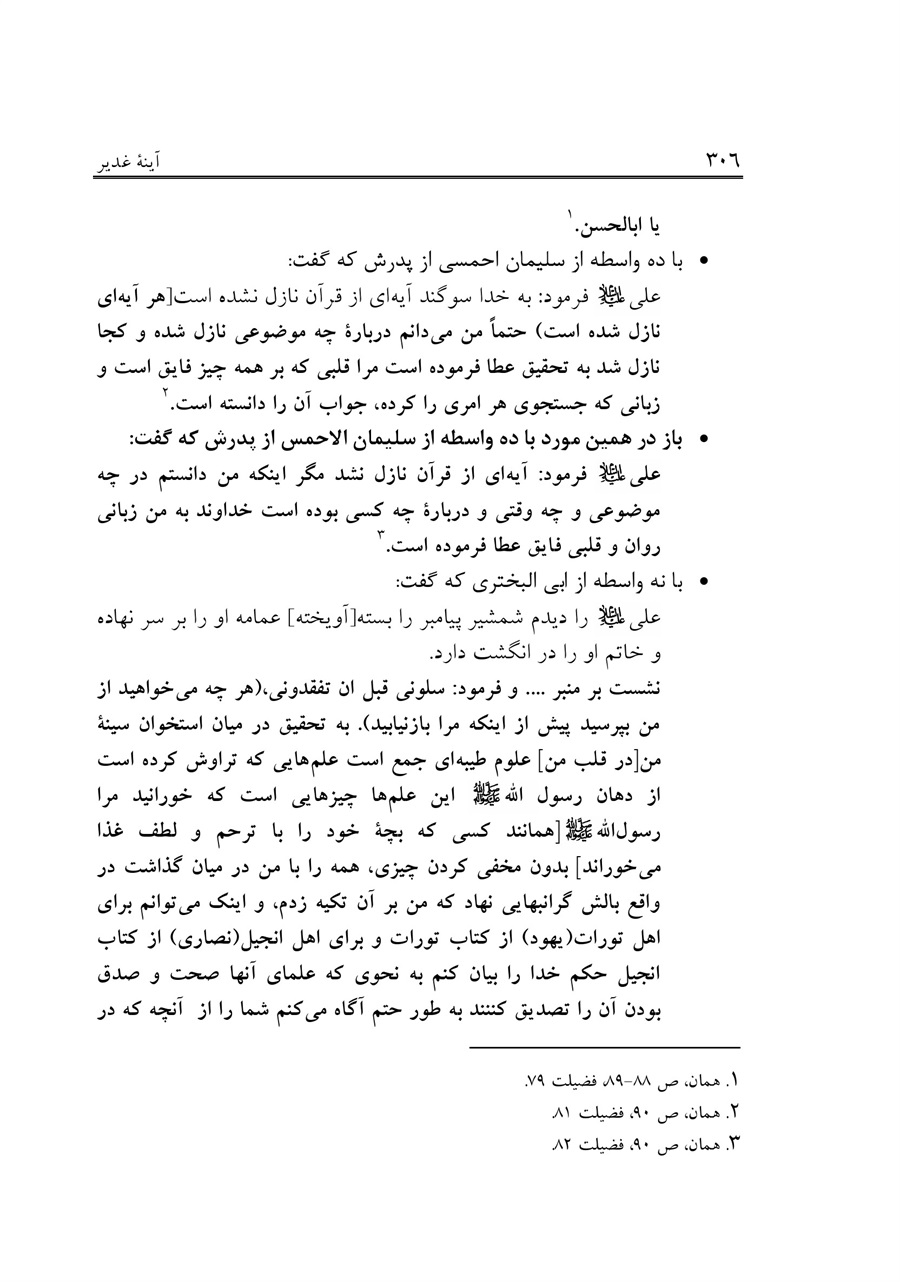 ۳۰۶
آینهٔ غدیر
یا ابالحسن.۱
• با ده واسطه از سلیمان احمسی از پدرش که گفت:
علی علیه‌السلام فرمود: به خدا سوگند آیه‌ای از قرآن نازل نشده است[هر آیه‌ای
نازل شده است) حتماً من می‌دانم دربارهٔ چه موضوعی نازل شده و کجا
نازل شد به تحقیق عطا فرموده است مرا قلبی که بر همه چیز فایق است و
زبانی که جستجوی هر امری را کرده، جواب آن را دانسته است.۲
• باز در همین مورد با ده واسطه از سلیمان الاحمس از پدرش که گفت:
علی علیه‌السلام فرمود: آیه‌ای از قرآن نازل نشد مگر اینکه من دانستم در چه
موضوعی و چه وقتی و دربارهٔ چه کسی بوده است خداوند به من زبانی
روان و قلبی فایق عطا فرموده است.۳
• با نه واسطه از ابی البختری که گفت:
علی علیه‌السلام را دیدم شمشیر پیامبر را بسته[آویخته] عمامه او را بر سر نهاده
و خاتم او را در انگشت دارد.
نشست بر منبر .... و فرمود: سلونی قبل ان تفقدونی،(هر چه می‌خواهید از
من بپرسید پیش از اینکه مرا بازنیابید). به تحقیق در میان استخوان سینهٔ
من[در قلب من] علوم طیبه‌ای جمع است علم‌هایی که تراوش کرده است
از دهان رسول الله ﷺ این علم‌ها چیزهایی است که خورانید مرا
رسول‌الله ﷺ [همانند کسی که بچهٔ خود را با ترحم و لطف غذا
می‌خوراند] بدون مخفی کردن چیزی، همه را با من در میان گذاشت در
واقع بالش گرانبهایی نهاد که من بر آن تکیه زدم، و اینک می‌توانم برای
اهل تورات(یهود) از کتاب تورات و برای اهل انجیل(نصاری) از کتاب
انجیل حکم خدا را بیان کنم به نحوی که علمای آنها صحت و صدق
بودن آن را تصدیق کننند به طور حتم آگاه می‌کنم شما را از آنچه که در
۱. همان، ص ۸۸-۸۹، فضیلت ۷۹.
۲. همان، ص ۹۰، فضیلت ۸۱.
۳. همان، ص ۹۰، فضیلت ۸۲.